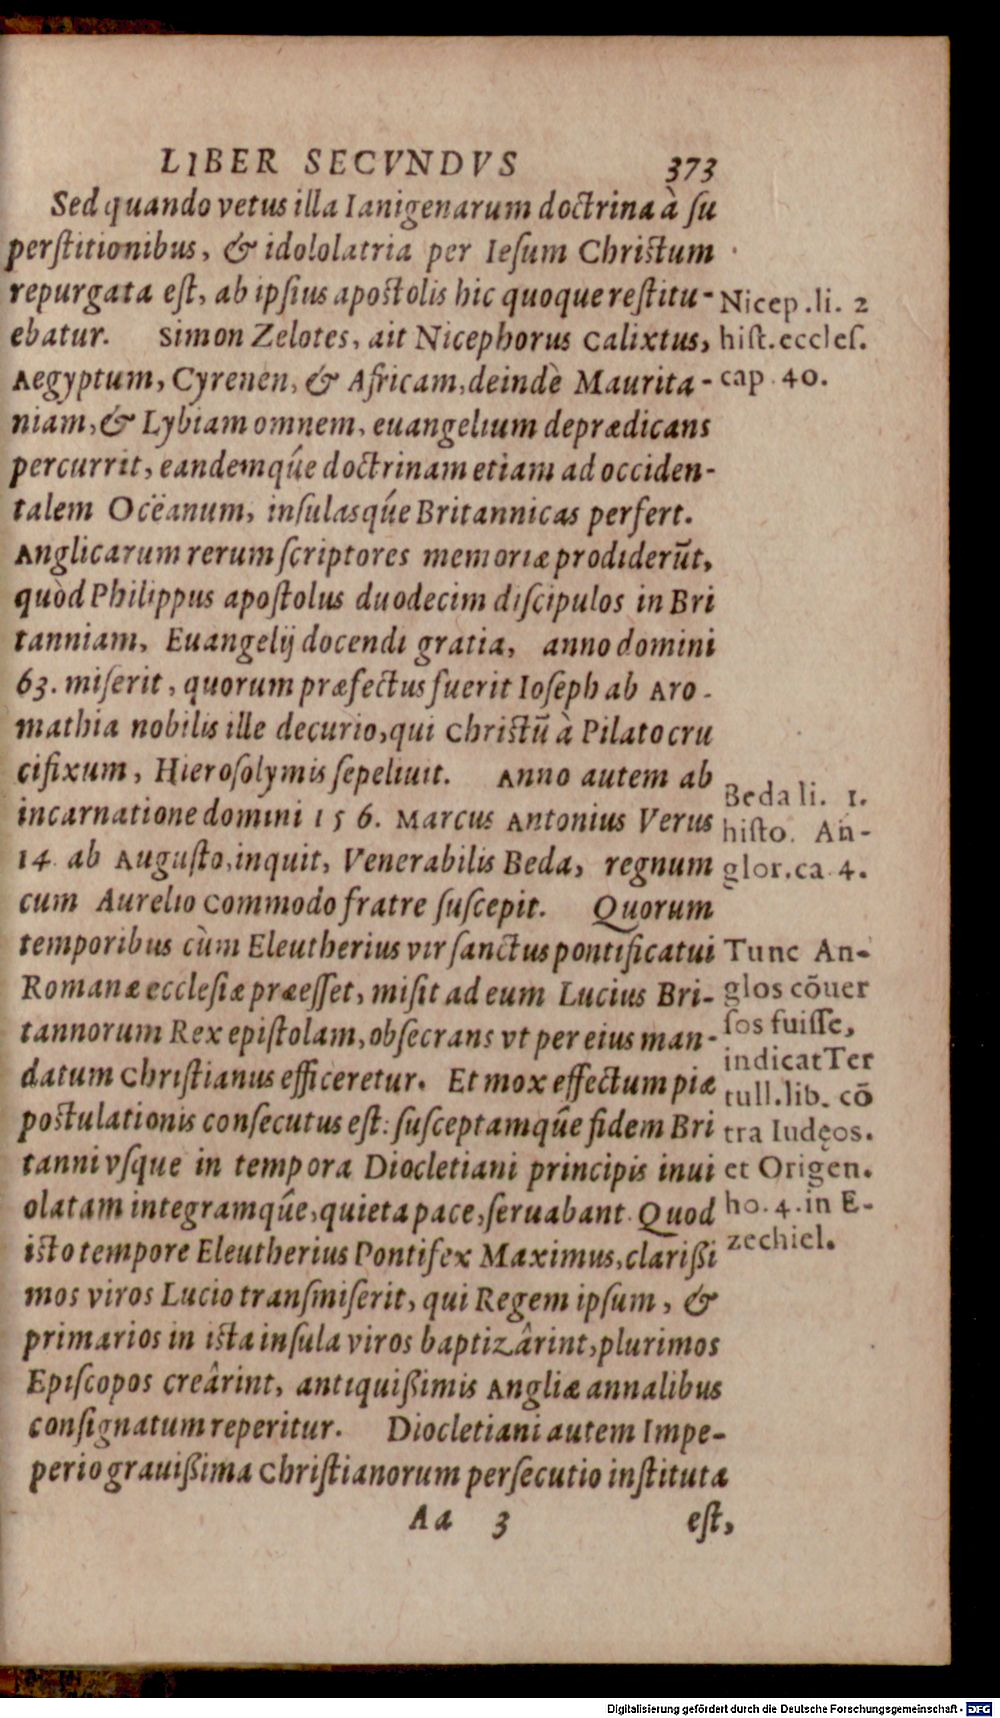 LIBER SECVNDVS 373
Sed quando vetus illa Ianigenarum doctrina à su
perſtitionibus, & idololatria per Ieſum Chriſtum
repurgata eſt, ab ipſius apoſtolis hic quoque reſtitu-
ebatur. Simon Zelotes, ait Nicephorus Calixtus,
Aegyptum, Cyrenen, & Africam, deindè Maurita-
niam, & Lybiam omnem, euangelium deprædicans
percurrit, eandemq́ue doctrinam etiam ad occiden-
talem Oceanum, inſulasq́ue Britannicas perfert.
Anglicarum rerum ſcriptores memoriæ prodiderūt,
quòd Philippus apoſtolus duodecim diſcipulos in Bri
tanniam, Euangelij docendi gratia, anno domini
63. miſerit, quorum præfectus fuerit Ioſeph ab Aro-
mathia nobilis ille decurio, qui Chriſtū à Pilato cru
cifixum, Hieroſolymis ſepeliuit. Anno autem ab
incarnatione domini 156. Marcus Antonius Verus
14. ab Auguſto, inquit, Venerabilis Beda, regnum
cum Aurelio Commodo fratre ſuſcepit. Quorum
temporibus cùm Eleutherius vir ſanctus pontificatui
Romanæ eccleſiæ præeſſet, miſit ad eum Lucius Bri-
tannorum Rex epiſtolam, obſecrans vt per eius man-
datum Chriſtianus efficeretur. Et mox effectum piæ
poſtulationis conſecutus eſt: ſuſceptamq́ue fidem Bri
tanni vſque in tempora Diocletiani principis inui
olatam integramq́ue, quieta pace, ſeruabant. Quod
iſto tempore Eleutherius Pontifex Maximus, clarißi
mos viros Lucio tranſmiſerit, qui Regem ipſum, &
primarios in iſta inſula viros baptizârint, plurimos
Epiſcopos creârint, antiquißimis Angliæ annalibus
conſignatum reperitur. Diocletiani autem Impe-
perio grauißima Chriſtianorum perſecutio inſtituta
Aa 3 eſt,
Nicep. li. 2
hiſt. eccleſ.
cap. 40.
Beda li. 1.
hiſto. An-
glor. ca. 4.
Tunc An-
glos cōuer
ſos fuiſſe,
indicat Ter
tull. lib. cō
tra Iudęos.
et Origen.
ho. 4. in E-
zechiel.
Digitalisierung gefördert durch die Deutsche Forschungsgemeinschaft - DFG